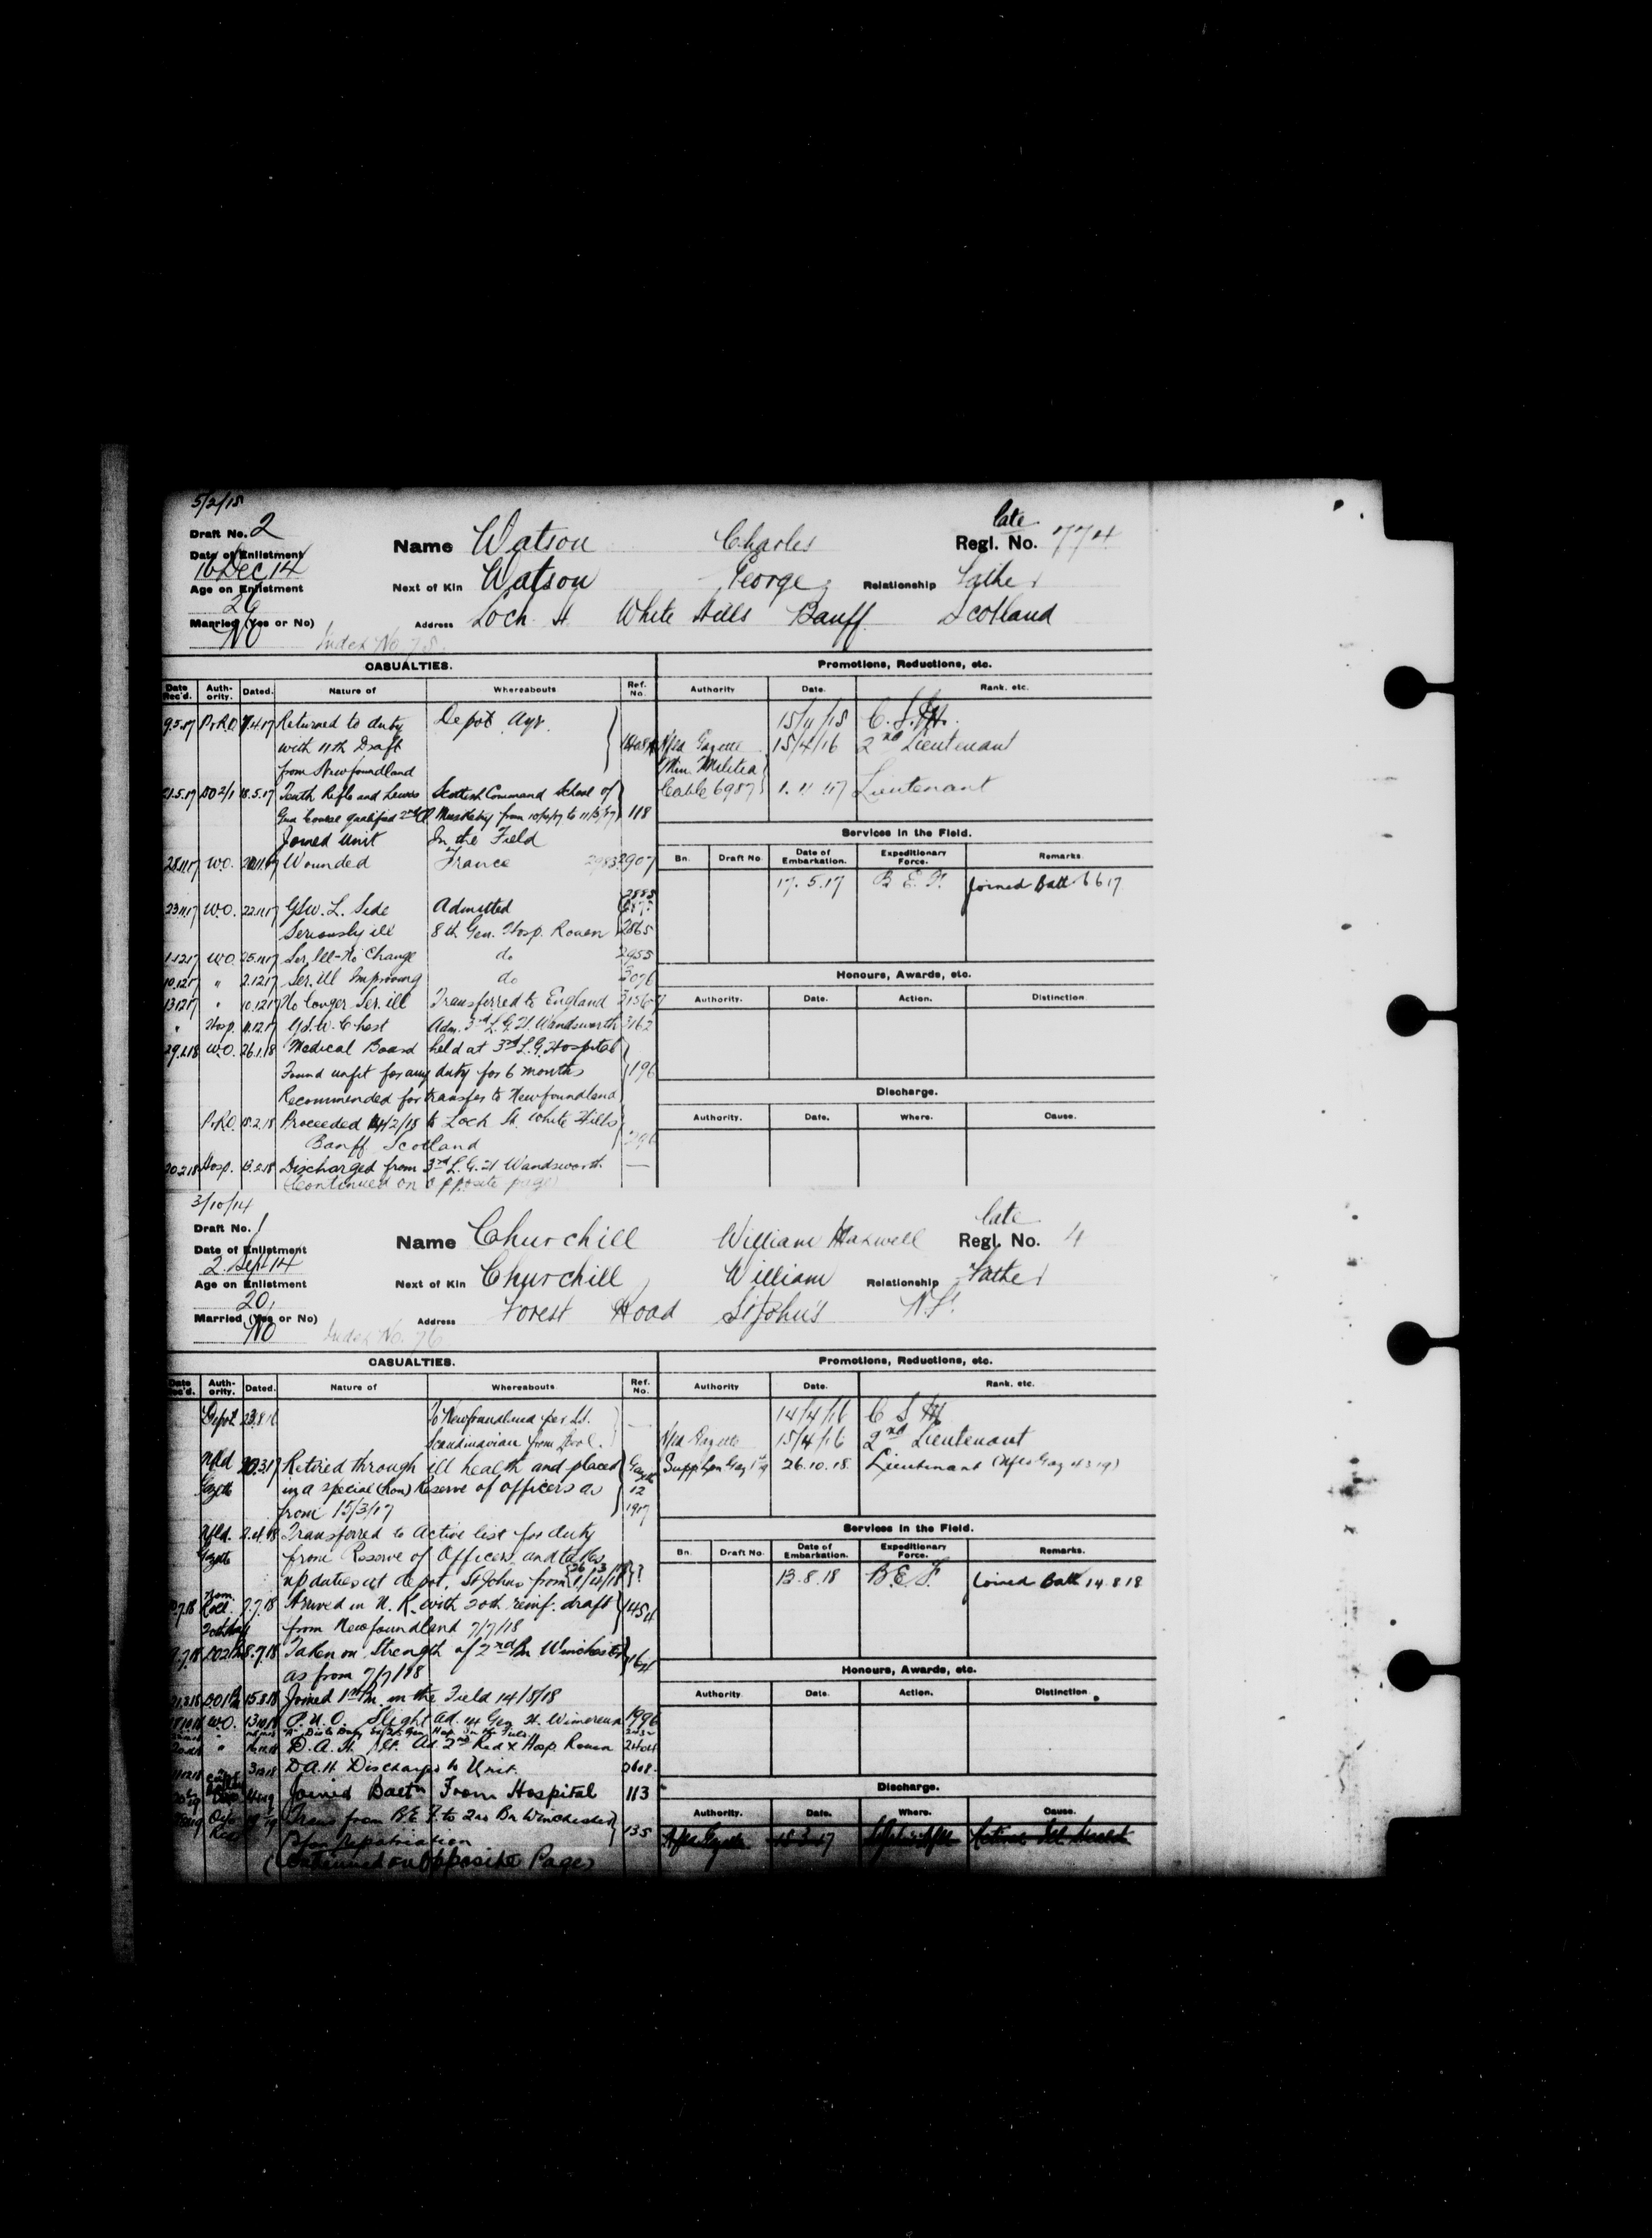 5/2/15
Draft No. 2
late
Name Watson Charles Regl. No. 774
Date of Enlistment
16 Dec 14
Next of Kin Watson George Relationship Father
Age on Enlistment
26
Address Loch St White Hills Banff Scotland
Married (Yes or No)
No
Index No. 75
CASUALTIES. Promotions, Reductions, etc.
Date Rec'd. Auth-ority. Dated. Nature of Whereabouts Ref. No. Authority Date. Rank. etc.
9.5.17 P.&R.O. Returned to duty Depot Ayr.
with 11th Draft
from Newfoundland
15/11/15 C.S.M.
Nfld Gazette 15/4/16 2nd Lieutenant
Min. Militia
Cable 6987 1.11.17 Lieutenant
21.5.17 18.5.17 Tenth Rifle and Lewis Scottish Command School of
Gun Course qualified 2nd Cl Musketry from to 118
Joined Unit In the Field
28.11.17 W.O. Wounded France 2983 2907
23.11.17 W.O. 22.11.17 GSW. L. Side Admitted
Seriously ill 8th Gen. Hosp. Rouen 2865
1.12.17 W.O. 25.11.17 Ser. Ill - No Change do 2955
10.12.17 " 2.12.17 Ser. ill Improving do 3076
13.12.17 " 10.12.17 No longer Ser. ill Transferred to England
" Hosp. 11.12.17 G.S.W. Chest Adm. 3rd L.G.H. Wandsworth 3162
29.1.18 W.O. 26.1.18 Medical Board held at 3rd L.G. Hospital
Found unfit for any duty for 6 months 196
Recommended for transfer to Newfoundland
P.&R.O. 15.2.18 Proceeded 14/2/18 to Loch St. White Hills
Banff Scotland
20.2.18 Hosp. Discharged from 3rd L.G.H Wandsworth —
(Continued on opposite page)
Services in the Field.
Bn. Draft No Date of Embarkation. Expeditionary Force. Remarks.
17.5.17 B.E.F. Joined Batt 6 6 17
Honours, Awards, etc.
Authority. Date. Action. Distinction
Discharge.
Authority. Date. Where. Cause.
3/10/14
Draft No. 1
late
Name Churchill William Maxwell Regl. No. 4
Date of Enlistment
2 Sept 14
Next of Kin Churchill William Relationship Father
Age on Enlistment
20
Address Forest Road St John's N.F.
Married (Yes or No)
No
Index No. 76
CASUALTIES. Promotions, Reductions, etc.
Date Rec'd. Auth-ority. Dated. Nature of Whereabouts Ref. No. Authority Date. Rank. etc.
Depot 23.8.16 To Newfoundland per S.S.
Scandinavian from L'pool.
14/4/16 C S M
Nfld Gazette 15/4/16 2nd Lieutenant
26.10.18. Lieutenant
Nfld Gazette Retired through ill health and placed Gazette
in a special (non) Reserve of Officers as 12
from 15/3/17 1917
Nfld. Gazette Transferred to Active list for duty
from Reserve of Officers and takes
up duties at depot, St Johns from
7.7.18 Arrived in U.K. with 20th reinf. draft
from Newfoundland 7/7/18
8.7.18 Taken on Strength of 2nd Bn Winchester
as from 7/7/18
15.8.18 Joined 1st Bn. in the Field 14/8/18
W.O. P.U.O. Slight Ad. Gen H. Wimereux 1996
" D.A.H. Ad 2nd Red X Hosp. Rouen
D.A.H Discharged to Unit.
Joined Battn From Hospital 113
Trans from B.E.F. to 2nd Bn Winchester
for repatriation 135
(Continued on Opposite Page)
Services in the Field.
Bn. Draft No Date of Embarkation. Expeditionary Force. Remarks.
13.8.18 B.E.F. Joined Batt 14.8.18
Honours, Awards, etc.
Authority Date. Action. Distinction
Discharge.
Authority. Date. Where. Cause.
Nfld Gazette 15.3.17